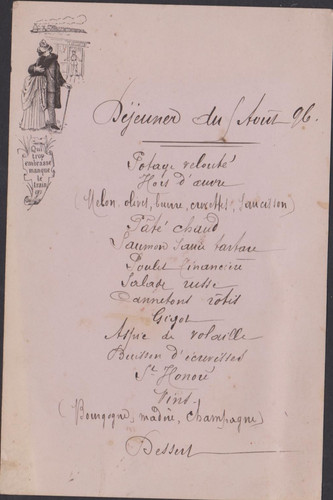 Qui
trop
embrasse
manque
le
train
Déjeuner du 1 Août 96.
Potage velouté
Hors d'œuvre
(Melon, olives, beurre, crevettes, Saucisson)
Pâté chaud
Saumon sauce tartare
Poulet financière
Salade russe
Cannetons rôtis
Gigot
Aspic de volaille
Buisson d'écrevesses
St Honoré
Vins.
(Bourgogne, madère, champagne)
Dessert